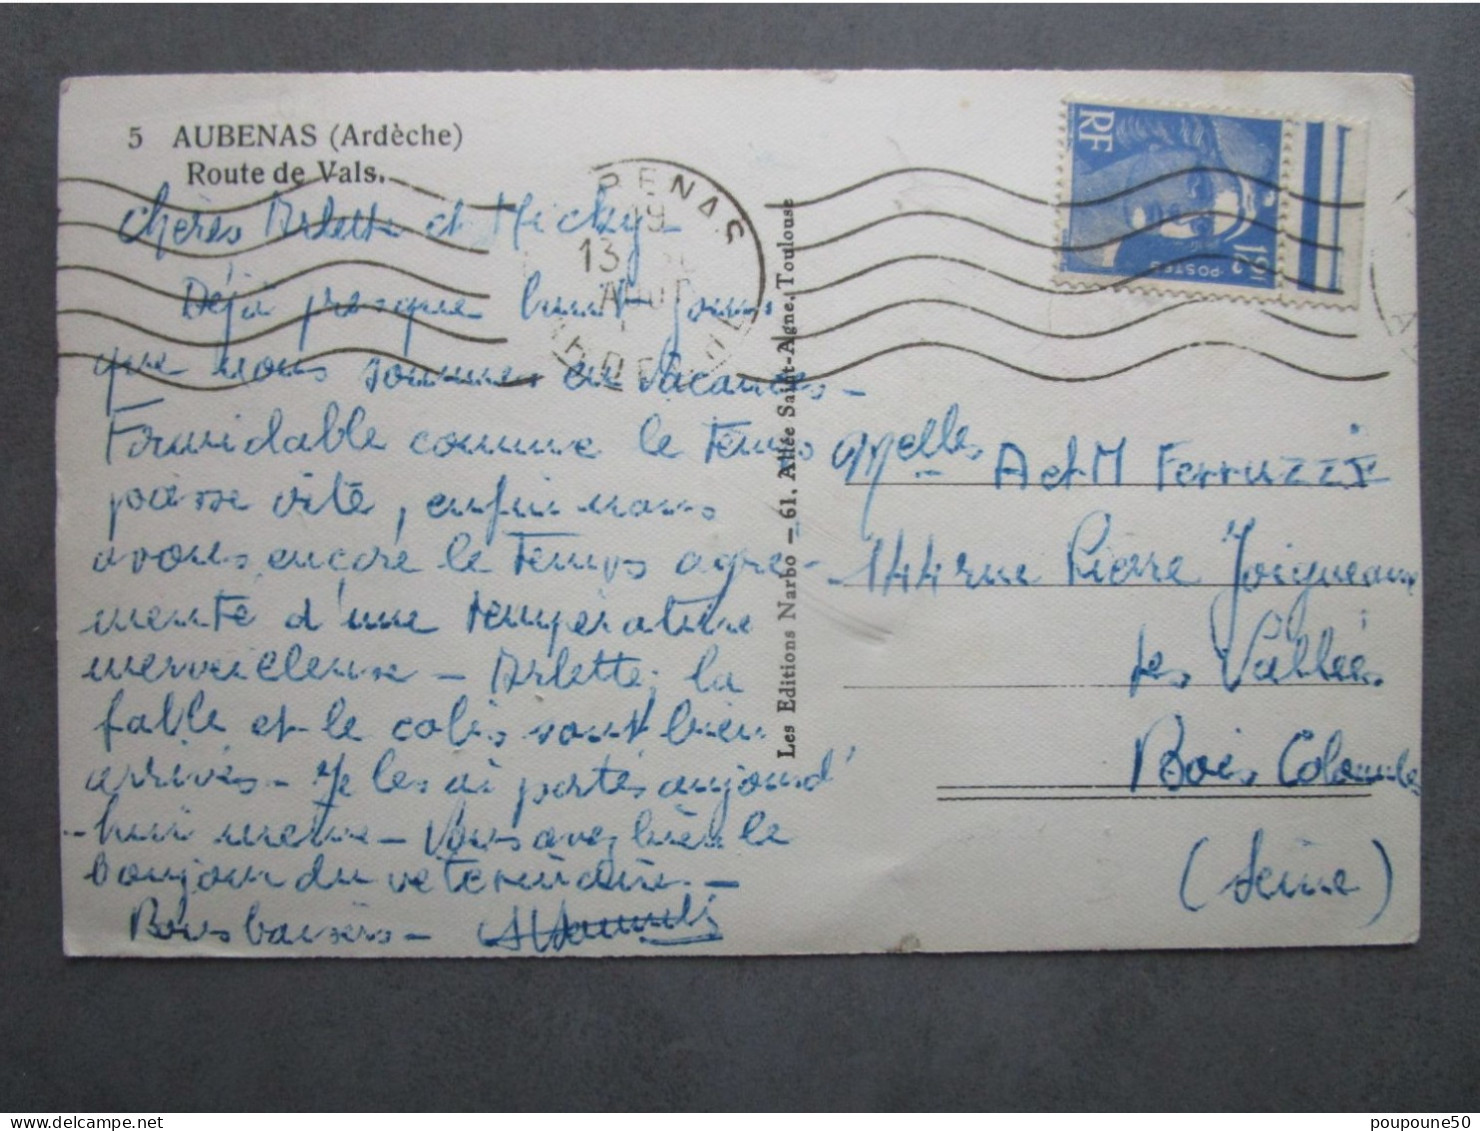 5 AUBENAS (Ardèche)
Route de Vals.
Chères Arlette et Micky
Déjà presque huit jours
que nous sommes en vacances –
Formidable comme le temps
passe vite, enfin nous
avons encore le temps agré-
menté d'une température
merveilleuse – Arlette, la
table et le colis sont bien
arrivés – Je les ai portés aujourd'
hui même – Vous avez bien le
bonjour du vétérinaire –
Bons baisers –
AUBENAS
19
13
AOUT
ARDECHE
RF
POSTES
15F
Les Editions Narbo — 61, Allée Saint-Agne, Toulouse
Melles A et M Ferruzzi
144 rue Pierre Joigneaux
Les Vallées
Bois Colombes
(Seine)
poupoune50